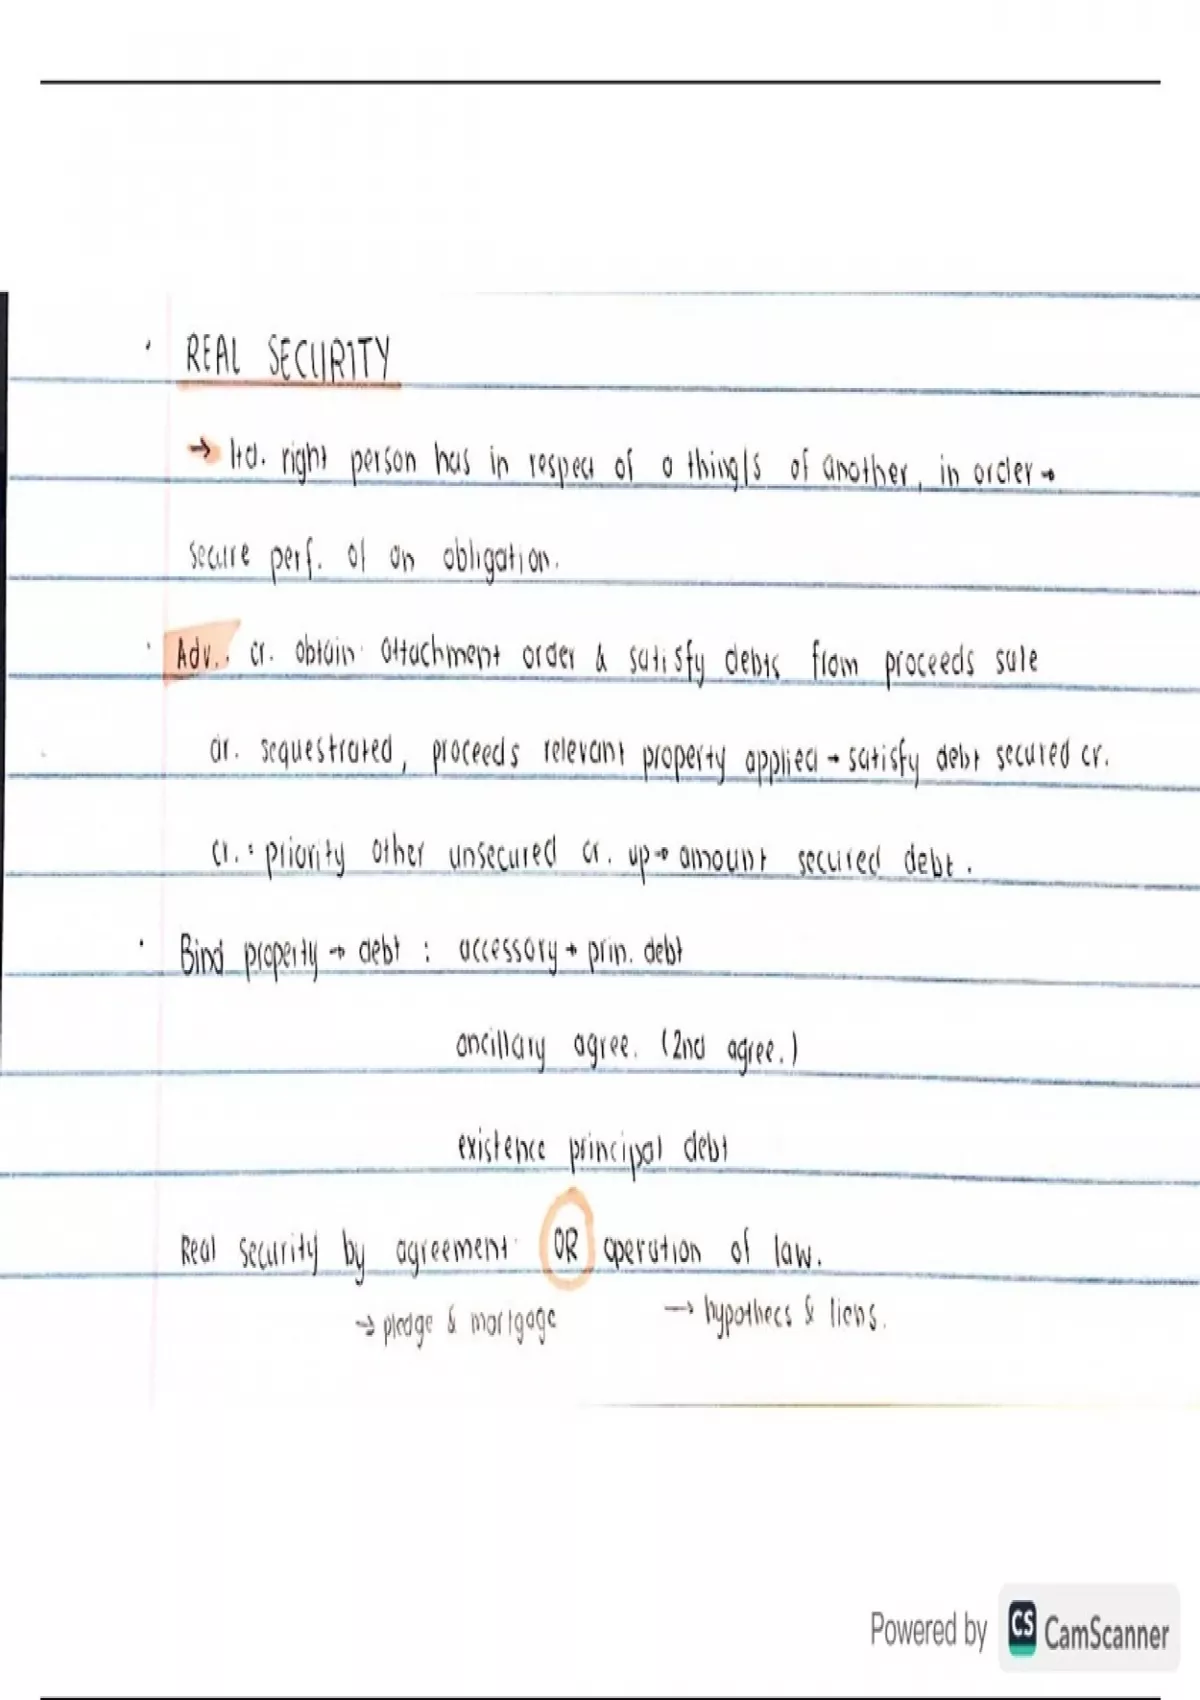 · REAL SECURITY
→ ltd. right person has in respect of a thing/s of another, in order →
secure perf. of an obligation.
· Adv.: cr. obtain attachment order & satisfy debts from proceeds sale
dr. sequestrated, proceeds relevant property applied → satisfy debt secured cr.
cr. = priority other unsecured cr. up → amount secured debt.
· Bind property → debt : accessory → prin. debt
ancillary agree. (2nd agree.)
existence principal debt
Real security by agreement OR operation of law.
→ pledge & mortgage → hypothecs & liens.
Powered by CS CamScanner